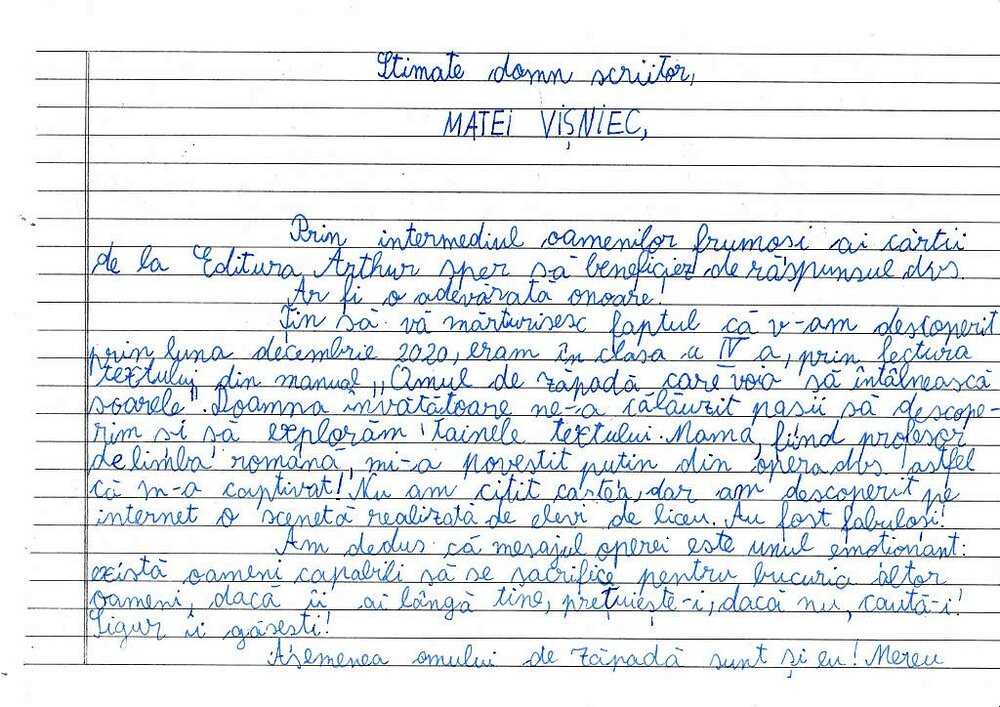 Stimate domn scriitor,
MATEI VIȘNIEC,
Prin intermediul oamenilor frumosi ai cărtii
de la Editura Arthur sper să beneficiez de răspunsul dvs.
Ar fi o adevărată onoare!
Țin să vă mărturisesc faptul că v-am descoperit
prin luna decembrie 2020, eram în clasa a IV a, prin lectura
textului din manual „Omul de zăpadă care voia să întâlnească
soarele". Doamna învătătoare ne-a călăuzit pasii să descope-
rim si să explorăm tainele textului. Mama, fiind profesor
de limba română, mi-a povestit putin din opera dvs astfel
că m-a captivat! Nu am citit cartea, dar am descoperit pe
internet o scenetă realizată de elevi de liceu. Au fost fabulosi!
Am dedus că mesajul operei este unul emotionant:
există oameni capabili să se sacrifice pentru bucuria altor
oameni, dacă îi ai lângă tine, prețuiește-i, dacă nu, caută-i!
Sigur îi găsesti!
Asemenea omului de zăpadă sunt și eu! Mereu